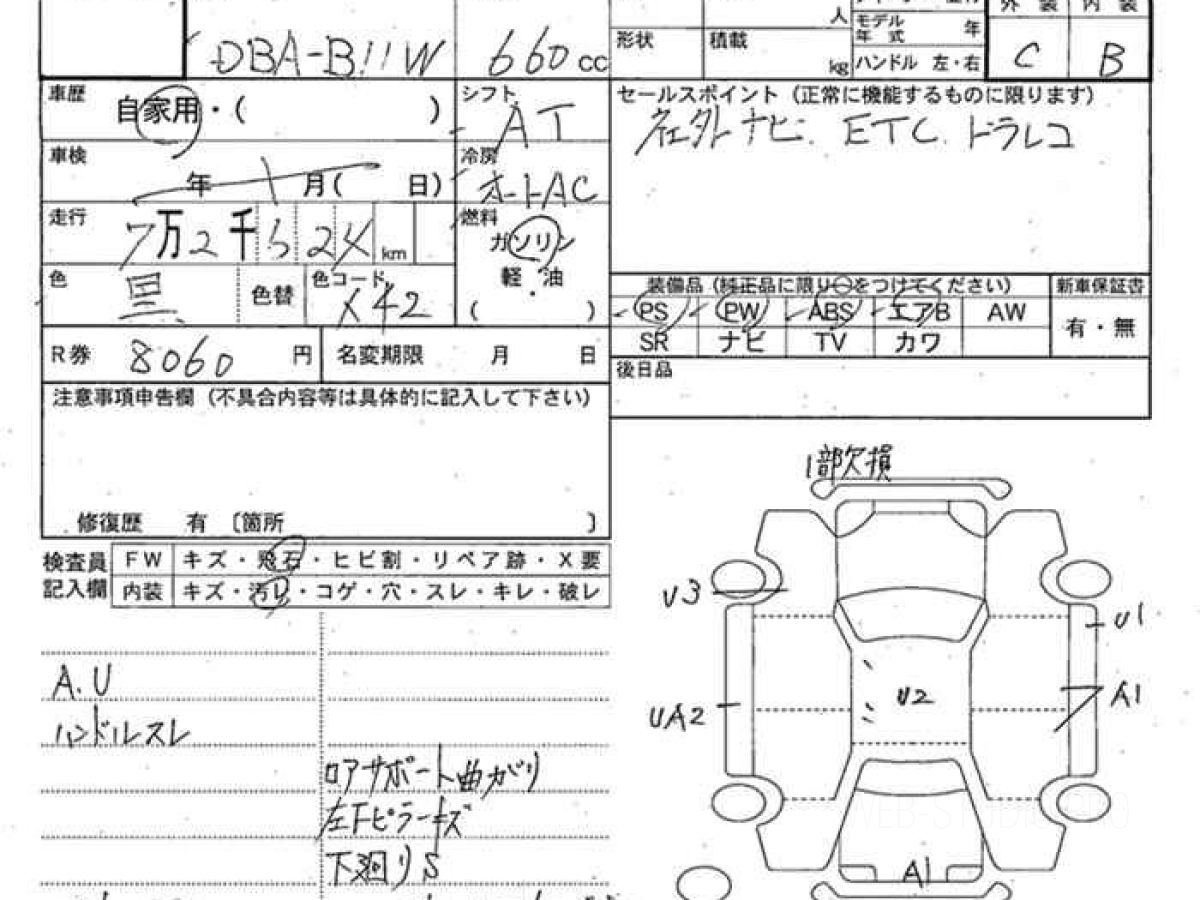 外 装 内 装
人 モデル年式 年
DBA-B11W 660 cc
形状 積載 kg ハンドル 左・右
C B
車歴 自家用・( )
シフト AT
セールスポイント (正常に機能するものに限ります)
社外ナビ. ETC. ドラレコ
車検 年 月( 日)
冷房 オートAC
走行 7万2千524km
燃料 ガソリン
軽・油
( )
色 黒 色替 色コード X42
装備品 (純正品に限り○をつけてください) 新車保証書
PS PW ABS エアB AW 有・無
SR ナビ TV カワ
R券 8060 円 名変期限 月 日
後日品
注意事項申告欄 (不具合内容等は具体的に記入して下さい)
修復歴 有 〔箇所 〕
1部欠損
検査員記入欄
FW キズ・飛石・ヒビ割・リペア跡・X要
内装 キズ・汚レ・コゲ・穴・スレ・キレ・破レ
U3
U1
A.U
UA2 U2 A1
ハンドルスレ
ロアサポート曲がり
左Fピラーキズ
下廻りS
A1